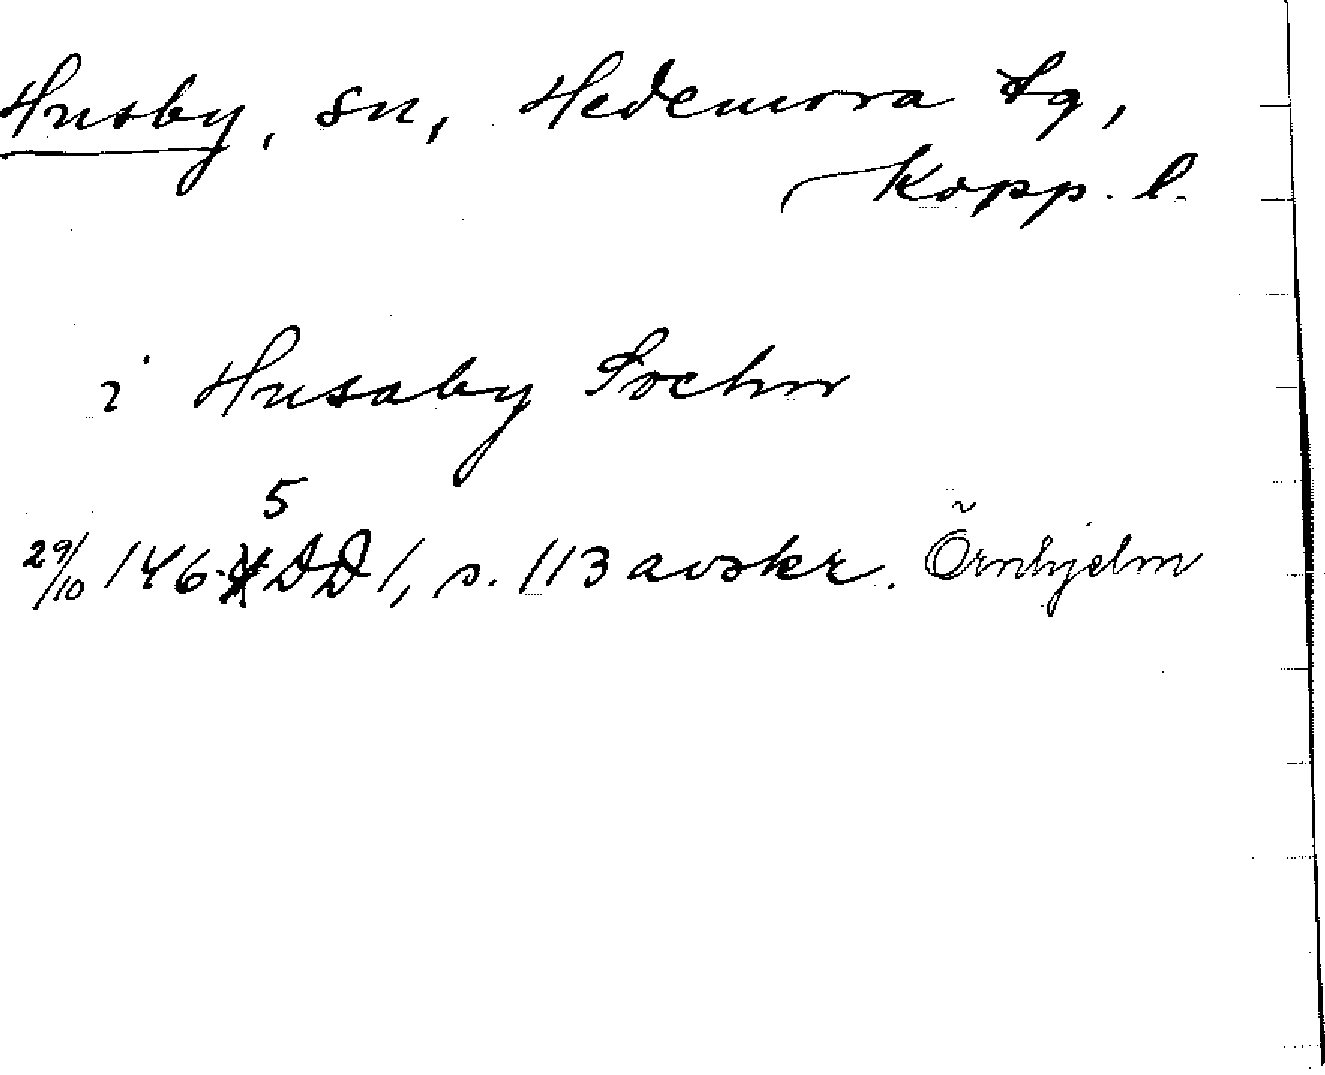 Husby, sn, Hedemora tg,
Kopp. l.
i Husaby Sochn
5
29/10 146 DD 1, s. 113 avskr. Örnhjelm